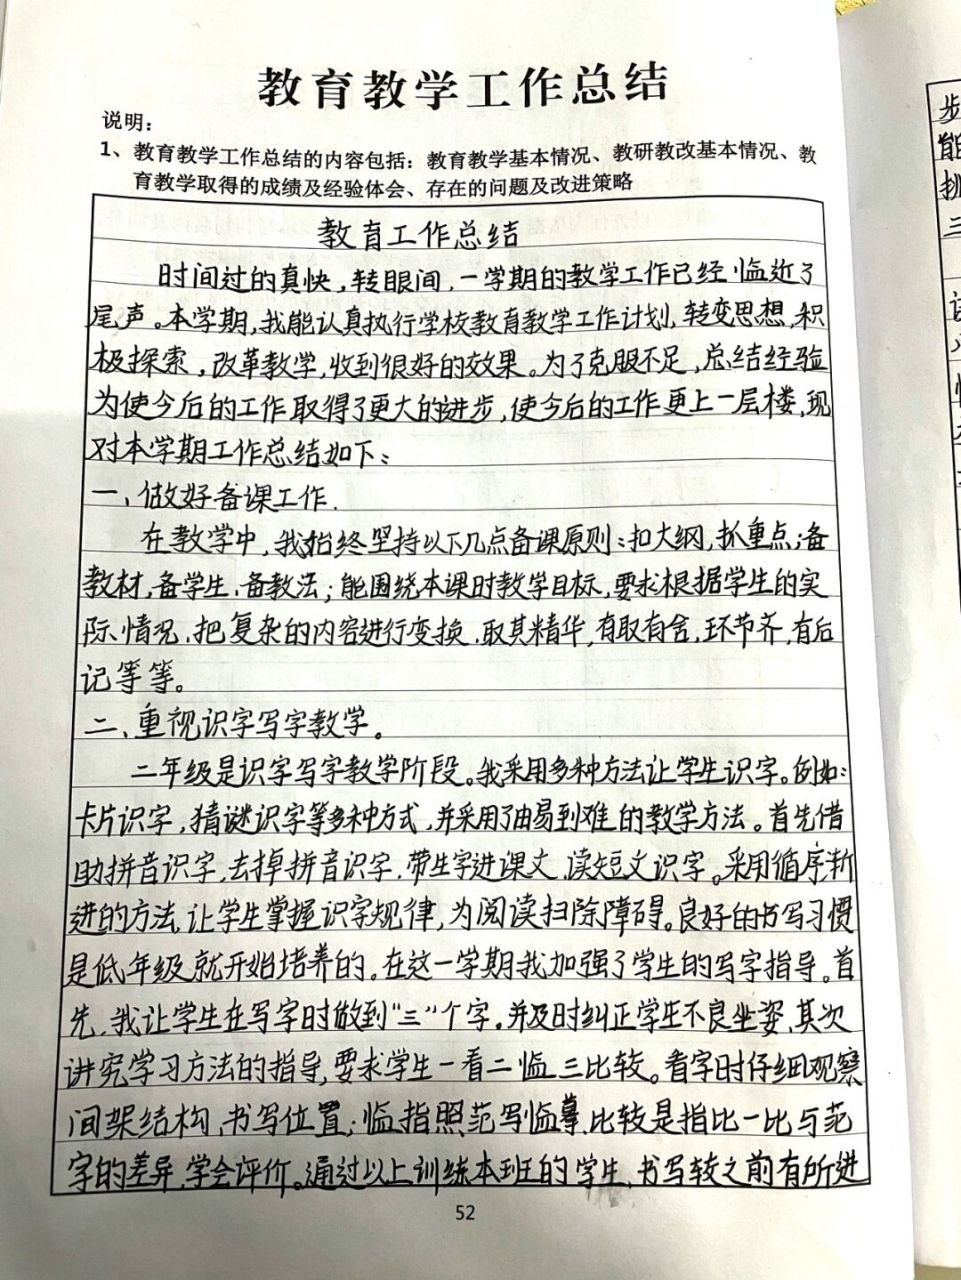 教育教学工作总结
说明：
1、教育教学工作总结的内容包括：教育教学基本情况、教研教改基本情况、教
育教学取得的成绩及经验体会、存在的问题及改进策略
教育工作总结
时间过的真快，转眼间，一学期的教学工作已经临近了
尾声。本学期，我能认真执行学校教育教学工作计划，转变思想，积
极探索，改革教学，收到很好的效果。为了克服不足，总结经验
为使今后的工作取得了更大的进步，使今后的工作更上一层楼，现
对本学期工作总结如下：
一、做好备课工作.
在教学中，我始终坚持以下几点备课原则：扣大纲，抓重点；备
教材，备学生、备教法；能围绕本课时教学目标，要求根据学生的实
际情况，把复杂的内容进行变换，取其精华，有取有舍，环节齐，有后
记等等。
二、重视识字写字教学。
二年级是识字写字教学阶段。我采用多种方法让学生识字。例如：
卡片识字，猜谜识字等多种方式，并采用了由易到难的教学方法。首先借
助拼音识字，去掉拼音识字，带生字进课文，读短文识字。采用循序渐
进的方法，让学生掌握识字规律，为阅读扫除障碍。良好的书写习惯
是低年级就开始培养的。在这一学期我加强了学生的写字指导。首
先，我让学生在写字时做到“三”个字。并及时纠正学生不良坐姿，其次
讲究学习方法的指导，要求学生一看二临三比较。看字时仔细观察
间架结构，书写位置；临指照范写临摹，比较是指比一比与范
字的差异，学会评价。通过以上训练本班的学生，书写较之前有所进
52
步
能
挑
三